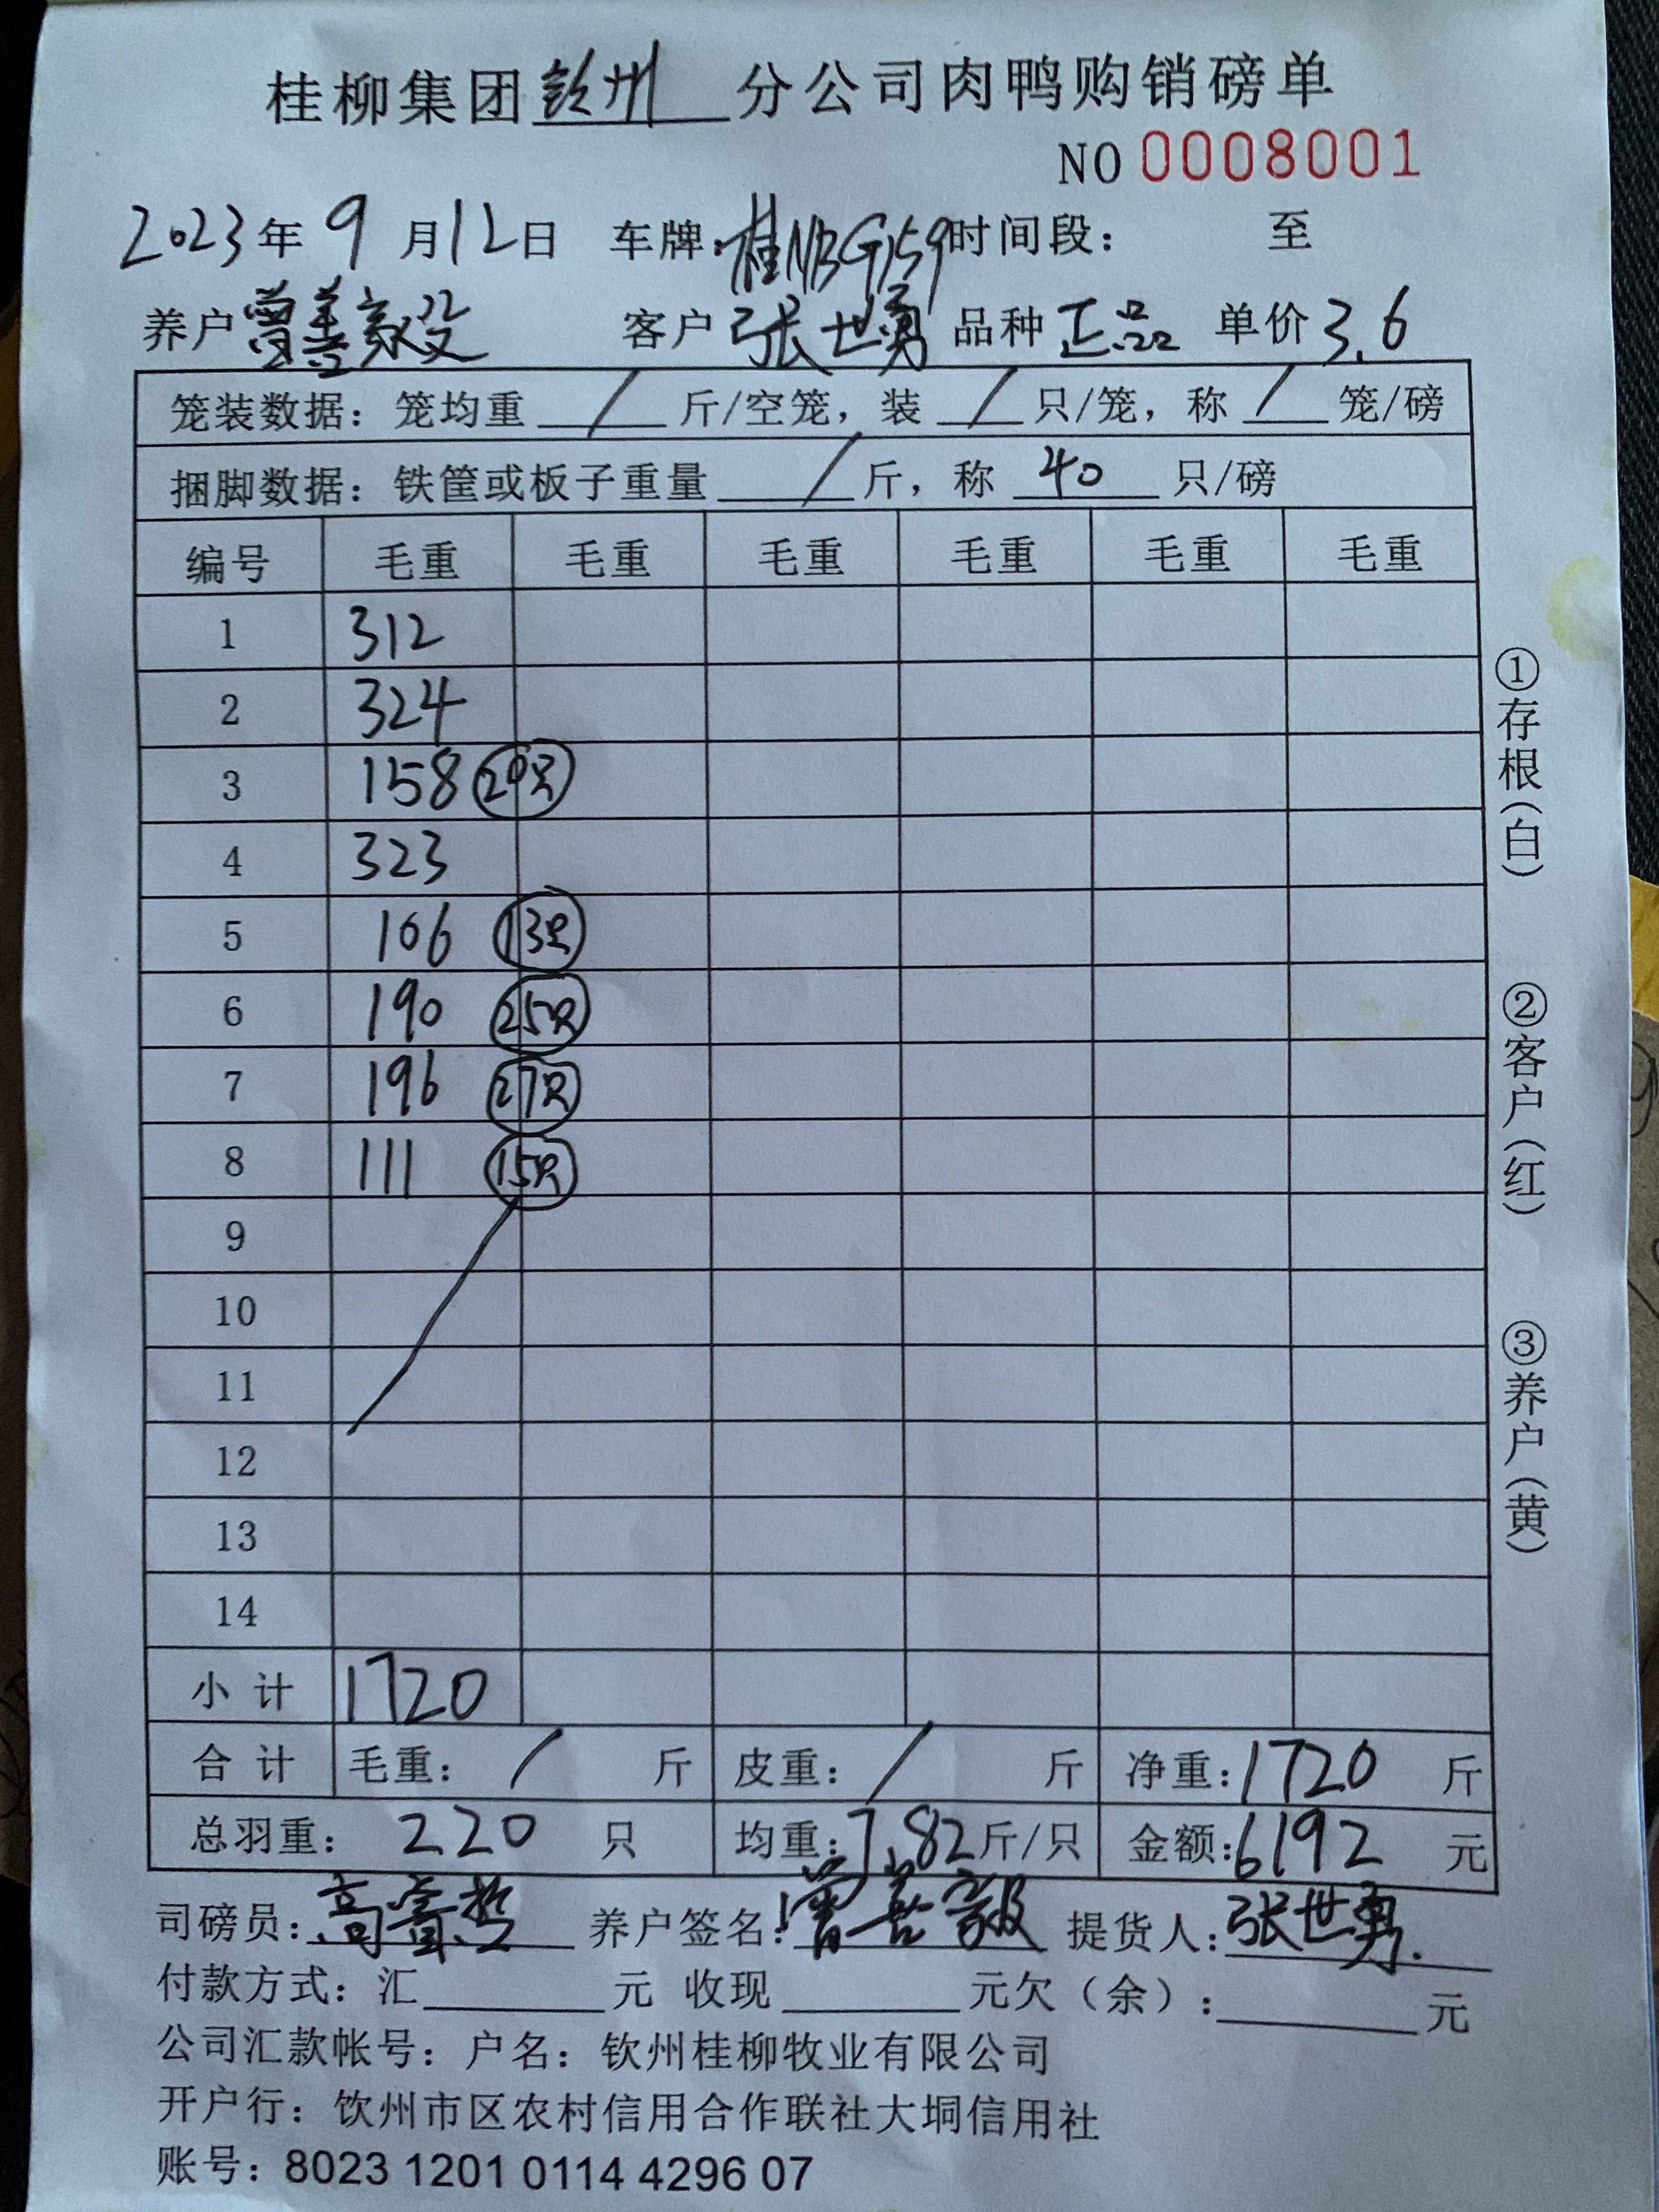 桂柳集团钦州分公司肉鸭购销磅单
NO 0008001
2023年9月12日 车牌:桂NBG159时间段: 至
养户曾善毅 客户张世勇 品种正品 单价3.6
笼装数据: 笼均重 / 斤/空笼, 装 / 只/笼, 称 / 笼/磅
捆脚数据: 铁筐或板子重量 / 斤, 称 40 只/磅
编号 毛重 毛重 毛重 毛重 毛重 毛重
1 312
2 324
3 158 20只
4 323
5 106 13只
6 190 25只
7 196 27只
8 111 15只
9
10
11
12
13
14
小计 1720
合计 毛重: / 斤 皮重: / 斤 净重:1720 斤
总羽重: 220 只 均重:7.82斤/只 金额:6192 元
司磅员: 养户签名:曾善毅 提货人:张世勇.
付款方式: 汇 元 收现 元欠(余): 元
公司汇款帐号: 户名: 钦州桂柳牧业有限公司
开户行: 钦州市区农村信用合作联社大垌信用社
账号: 8023 1201 0114 4296 07
①存根(白)
②客户(红)
③养户(黄)